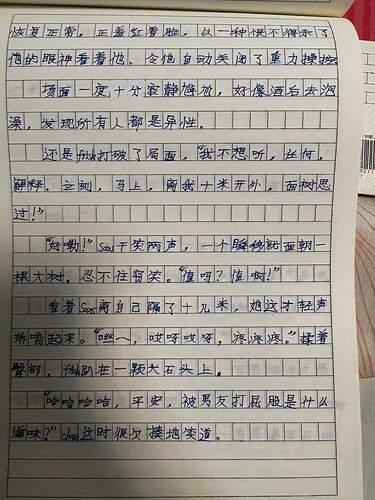 恢复正常。正羞红着脸，以一种恨不得杀了
他的眼神看着他。令他自动关闭了重力操控
场面一度十分寂静尴尬，好像酒后去泡
澡，发现所有人都是异性。
还是打破了局面，“我不想听，任何，
解释。立刻，马上，离我十米开外。面树思
过！”
“好嘞！”干笑两声，一个瞬移就面朝一
棵大树。忍不住窃笑。“值吗？值啊！”
看着离自己隔了十几米，她这才轻声
娇喘起来。“嘶～，哎呀哎呀，疼疼疼。”揉着
臀部，趴在一颗大石头上。
“哈哈哈哈，平安，被男友打屁股是什么
滋味？”这时很欠揍地笑道。